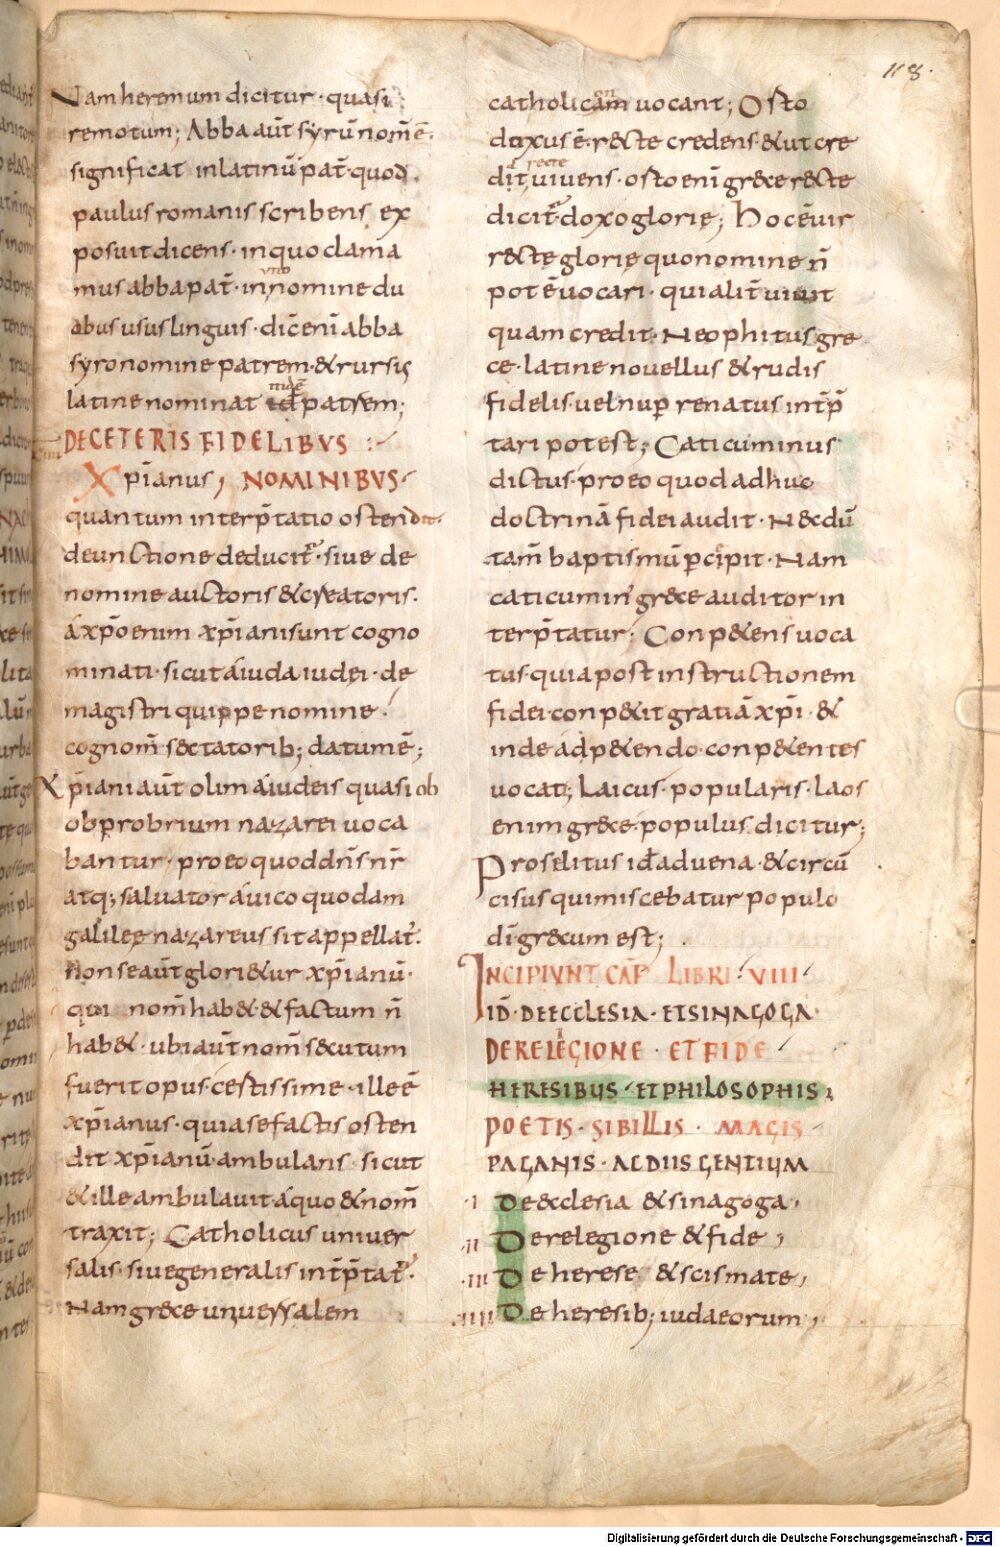 118.
Nam heremum dicitur · quasi
remotum; Abba aūt syrū nom̄ ē·
significat in latinū pat̄ · quod
paulus romanis scribens ex
posuit dicens · in quo clama
mus abba pat̄ · in uno nomine du
abus usus linguis · dic̄ enī abba
syro nomine patrem · & rursis
latine nominat patrem;
DE CETERIS FIDELIBVS
Xpīanus, NOMINIBVS·
quantum interp̄tatio ostendit·
de unctione deducit̄ · siue de
nomine auctoris & creatoris·
á xp̄o enim xpīani sunt cogno
minati · sicut á iuda iudei · de
magistri quippe nomine ·
cognom̄ sectatorib; datum ē;
Xpīani aūt olim á iudeis quasi ob
obprobrium nazarei uoca
bantur · pro eo quod dn̄s nr̄
atq; saluator á uico quodam
galileę nazareus sit appellat̄·
Non se aūt glori&ur xpīanū ·
qui nom̄ hab& & factum n̄
hab& · ubi aūt nom̄ secutum
fuerit opus · c̄tissime · ille ē
xpīanus · quia se factis osten
dit xpīanū · ambulans · sicut
& ille ambulauit · á quo & nom̄
traxit; Catholicus uniuer
salis · siue generalis int̄p̄tat̄·
Nam grece uniuersalem
catholicam on uocant; Osto
doxus ē · recte credens · & ut cre
dit recte uiuens · osto enī grece recte
dicit̄ · doxo glorię; Hoc ē uir
recte glorię quo nomine n̄
pot ē uocari · qui alit̄ uiuit
quam credit · Neophitus gre
ce · latine nouellus & rudis
fidelis · uel nup̄ renatus int̄p̄
tari potest; Caticuminus
dictus · pro eo quod adhuc
doctrinā fidei audit · Necdū
tam̄ baptismū p̄cipit · Nam
caticumin̄ grece auditor in
terp̄tatur; Conp&ens uoca
tus · quia post instructionem
fidei · conp&it gratiā xpī · &
inde ád p&endo · conp&entes
uocat̄; Laicus · popularis · laos
enim grece · populus dicitur;
Proselitus id aduena · & circū
cisus qui miscebatur populo
dī · grecum est;
INCIPIVNT CAP̄ LIBRI · VIII
ID · DE ECCLESIA · ET SINAGOGA·
DE RELEGIONE · ET FIDE
HERESIBUS · ET PHILOSOPHIS;
POETIS · SIBILLIS · MAGIS
PAGANIS · AC DIIS GENTIUM
·I De ecclesia & sinagoga,
·II De relegione & fide,
·III De herese & scismate,
·IIII De heresib; iudaeorum,
Digitalisierung gefördert durch die Deutsche Forschungsgemeinschaft - DFG